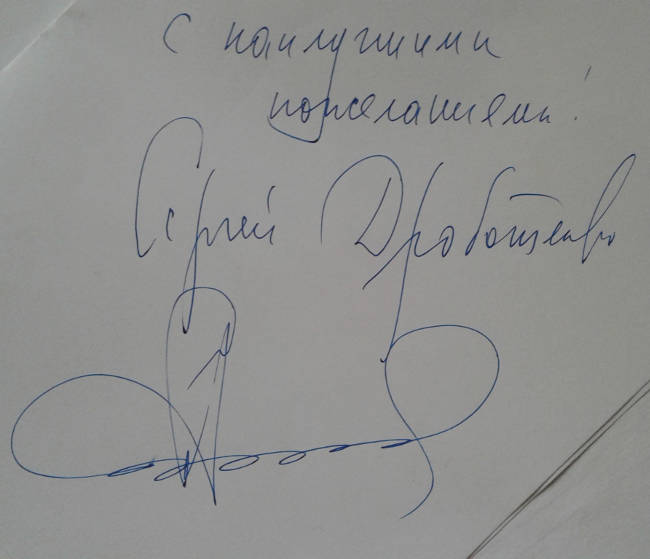 С наилучшими
пожеланиями!
Сергей Дроботенко